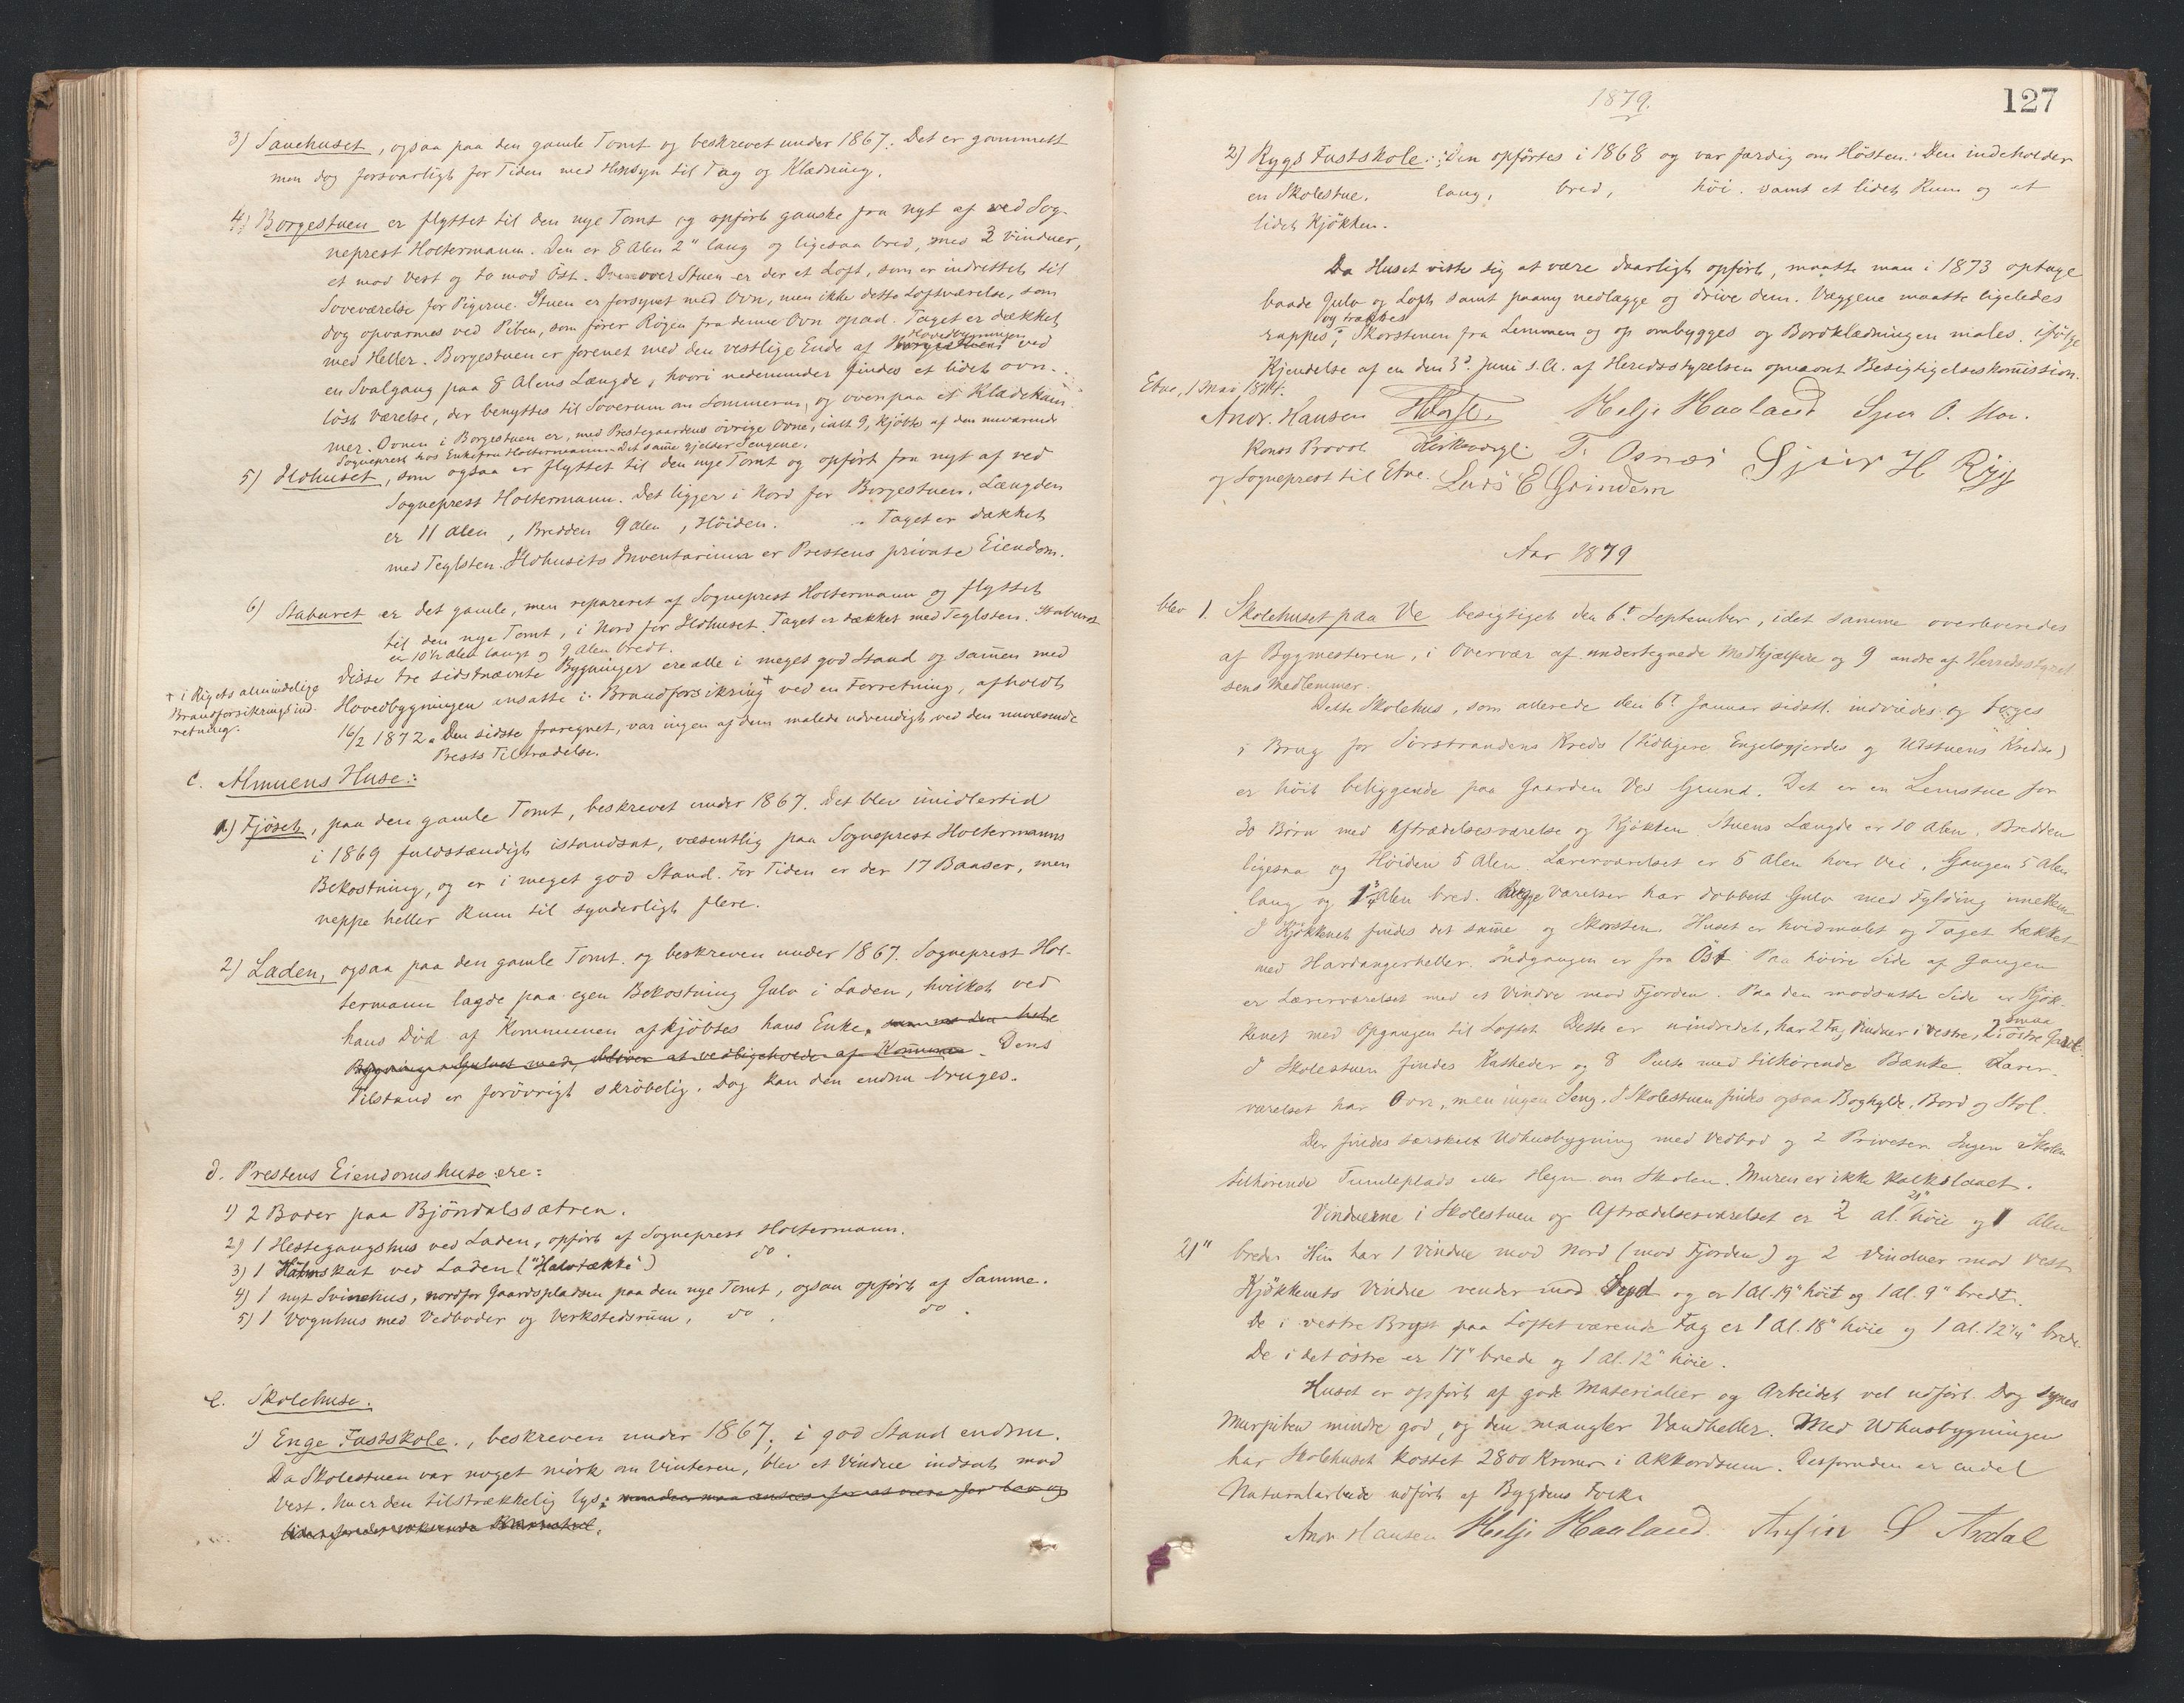 3) Sauehuset, ogsaa paa den gamle Tomt og beskrevet under 1867. Det er gammelt
men dog forsvarligt for Tiden med Hensyn til Tag og Klædning.
4) Borgestuen er flyttet til den nye Tomt og opført ganske fra nyt af ved Sog-
neprest Holtermann. Den er 8 Alen 2" lang og ligesaa bred, med 3 Vinduer,
et mod Vest og to mod Öst. Over Stuen er der et Loft, som er indrettet til
Soveværelse for Pigerne. Stuen er forsynet med Ovn, men ikke dette Loftværelse, som
dog opvarmes ved Piben, som fører Røgen fra denne Ovn opad. Taget er dækket
med Heller. Borgestuen er forenet med den vestlige Ende af Hovedbygningen ved
en Svalgang paa 8 Alens Længde, hvori nedenunder findes et lidet ovn-
løst Værelse, der benyttes til Soverum om Sommeren, og ovenpaa et Klædekam-
mer. Ovnen i Borgestuen er, med Prestegaardens øvrige Ovne, ialt 9, kjøbte af den nuværende
Sogneprest hos Enkefru Holtermann. Det samme gjelder Sengene.
5) Ildhuset, som ogsaa er flyttet til den nye Tomt og opført fra nyt af ved
Sogneprest Holtermann. Det ligger i Nord for Borgestuen. Længden
er 11 Alen, Bredden 9 Alen, Høiden. Taget er dækket
med Teglsten. Ildhusets Inventarium er Prestens private Eiendom.
6) Staburet er det gamle, men repareret af Sogneprest Holtermann og flyttet
til den nye Tomt, i Nord for Ildhuset. Taget er dækket med Teglsten. Staburet
er 10½ Alen langt og 9 Alen bredt.
Disse tre sidstnævnte Bygninger ere alle i meget god Stand og sammen med
Hovedbygningen ansatte i Brandforsikring + ved en Forretning, afholdt
16/2 1872. Den sidste fraregnet, var ingen af dem malede udvendigt ved den nuværende
Prests Tiltrædelse.
+ i Rigets almindelige
Brandforsikringsind-
retning.
C. Almuens Huse:
1) Fjöset, paa den gamle Tomt, beskrevet under 1867. Det blev imidlertid
i 1869 fuldstændigt istandsat, væsentlig paa Sogneprest Holtermanns
Bekostning, og er i meget god Stand. For Tiden er der 17 Baaser, men
neppe heller Rum til synderligt flere.
2) Laden, ogsaa paa den gamle Tomt og beskreven under 1867. Sogneprest Hol-
termann lagde paa egen Bekostning Gulv i Laden, hvilket ved
hans Död af Kommunen afkjöbtes hans Enke, som med den hele
Bygning, Gulvet med, bliver at vedligeholde af Kommunen. Dens
Tilstand er forövrigt skröbelig. Dog kan den endnu bruges.
d. Prestens Eiendomshuse ere:
1) 2 Boder paa Bjöndalssætren.
2) 1 Hestegangshus ved Laden, opfört af Sogneprest Holtermann.
3) 1 Halmskut ved Laden ("Halvtække") do.
4) 1 nyt Svinehus, nordfor Gaardspladsen paa den nye Tomt, ogsaa opfört af Samme.
5) 1 Vognhus med Vedboder og Verkstedsrum, do. do.
e. Skolehuse.
1) Enge Fastskole., beskreven under 1867, i god Stand endnu.
Da Skolestuen var noget mörk om Vinteren, blev et Vindue indsat mod
Vest. Nu er den tilstrækkelig lys;
1879.
127
2) Rygs Fastskole: Den opförtes i 1868 og var færdig om Hösten. Den indeholder
en Skolestue. lang, bred, höi. samt et lidet Rum og et
lidet Kjökken.
Da Huset viste sig at være daarligt opfört, maatte man i 1873 optage
baade Gulv og Loft samt paany nedlægge og drive dem. Væggene maatte ligeledes
rappes, Skorstenen fra Lemmen og op ombygges og Bordklædningen males, ifölge
Kjendelse af en den 3d. Juni s.A. af Heredsstyrelsen opnævnt Besigtigelseskommission.
Etne, 1 Mai 1874.
Andr. Hansen Helje Haaland Sjur O.
Konst Provst Kirkeverge T. Osnæs Sjur H Ryg
og Sogneprest til Etne. Lars E Grindem
Aar 1879
blev 1. Skolehuset paa Ve besigtiget den 6te September, idet samme overleveredes
af Bygmesteren, i Overvær af undertegnede Medhjælpere og 9 andre af Herredsstyrel
sens Medlemmer.
Dette Skolehus, som allerede den 6te Januar sidstl. indviedes og toges
i Brug for Sörstrandens Kreds (tidligere Engelsgjerdes og Ulstuens Kredse)
er höit beliggende paa Gaarden Ves Grund. Det er en Lemstue for
30 Börn med Aftrædelsesværelse og Kjökken. Stuens Længde er 10 Alen, Bredden
ligesaa og Höiden 5 Alen. Lærerværelset er 5 Alen hver Vei, Gangen 5 Alen
lang og Alen bred. Begge Værelser har dobbelt Gulv med Fyldning imellem
I Kjökkenet findes det samme og Skorsten. Huset er hvidmalet og Taget tækket
med Hardangerheller. Indgangen er fra Öst. Paa höire Side af Gangen
er Lærerværelset med et Vindue mod Fjorden. Paa den modsatte Side er Kjök-
kenet med Opgangen til Loftet. Dette er uindredet, har 2 Fag Vinduer i vestre, 2 smaa i östre Gavl.
I Skolestuen findes Katheder og 8 Pulte med tilhörende Bænke. Lærer-
værelset har Ovn, men ingen Seng. I Skolestuen findes ogsaa Boghylde, Bord og Stol.
Der findes særskilt Udhusbygning med Vedbod og 2 Priveter. Ingen Skolen
tilhörende Tumleplads eller Hegn om Skolen. Muren er ikke kalkslaaet.
Vinduerne i Skolestuen og Aftrædelsesværelset er 2 al. 21" höie og 1 Alen
21" brede. Hin har 1 Vindue mod Nord (mod Fjorden) og 2 Vinduer mod Vest
Kjökkenets Vindue vender mod Syd og er 1 Al. 19" höit og 1 Al. 9" bredt.
De i vestre Bryst paa Loftet værende Fag er 1 Al. 18" höie og 1 al. 12¼" brede
De i det östre er 17" brede og 1 al. 12" höie.
Huset er opfört af gode Materialier og Arbeidet vel udfört. Dog synes
Murpiben mindre god, og den mangler Vandheller. Med Udhusbygningen
har Skolehuset kostet 2800 Kroner i Akkordsum. Desforuden er endel
Naturalarbeide udfört af Bygdens Folk.
Andr Hansen Helje Haaland. Arfin S Ardal